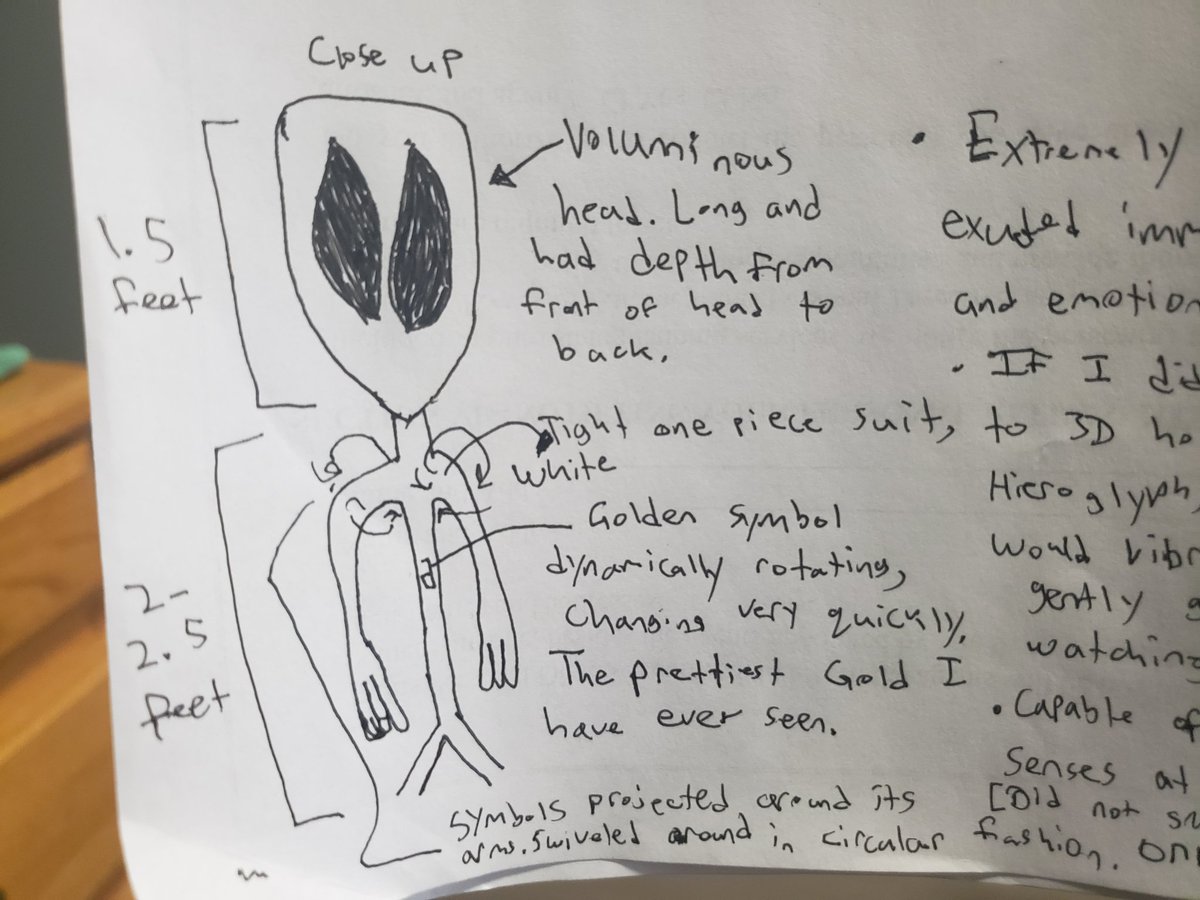 Close up
1.5
feet
Voluminous
head. Long and
had depth from
front of head to
back.
Tight one piece suit,
white
Golden symbol
dynamically rotating,
Changing very quickly.
The prettiest Gold I
have ever seen.
2-
2.5
feet
Symbols projected around its
arms. Swiveled around in circular fashion.
• Extremely
exuded
and emotion
• If I did
to 3D
Hieroglyph
Would
gently
watching
• Capable of
Senses at
[Did not